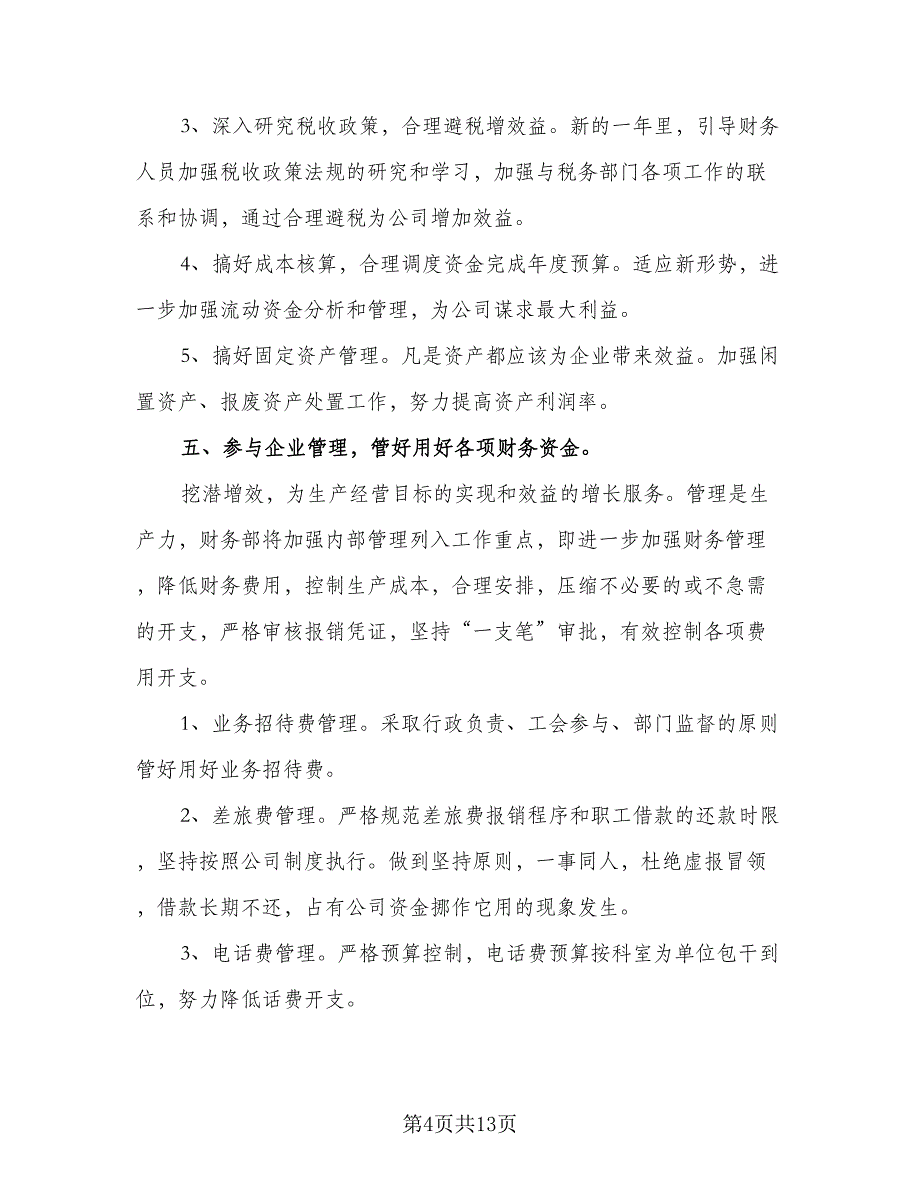 3、深入研究税收政策，合理避税增效益。新的一年里，引导财务
人员加强税收政策法规的研究和学习，加强与税务部门各项工作的联
系和协调，通过合理避税为公司增加效益。
4、搞好成本核算，合理调度资金完成年度预算。适应新形势，进
一步加强流动资金分析和管理，为公司谋求最大利益。
5、搞好固定资产管理。凡是资产都应该为企业带来效益。加强闲
置资产、报废资产处置工作，努力提高资产利润率。
五、参与企业管理，管好用好各项财务资金。
挖潜增效，为生产经营目标的实现和效益的增长服务。管理是生
产力，财务部将加强内部管理列入工作重点，即进一步加强财务管理
，降低财务费用，控制生产成本，合理安排，压缩不必要的或不急需
的开支，严格审核报销凭证，坚持“一支笔”审批，有效控制各项费
用开支。
1、业务招待费管理。采取行政负责、工会参与、部门监督的原则
管好用好业务招待费。
2、差旅费管理。严格规范差旅费报销程序和职工借款的还款时限
，坚持按照公司制度执行。做到坚持原则，一事同人，杜绝虚报冒领
，借款长期不还，占有公司资金挪作它用的现象发生。
3、电话费管理。严格预算控制，电话费预算按科室为单位包干到
位，努力降低话费开支。
第4页共13页